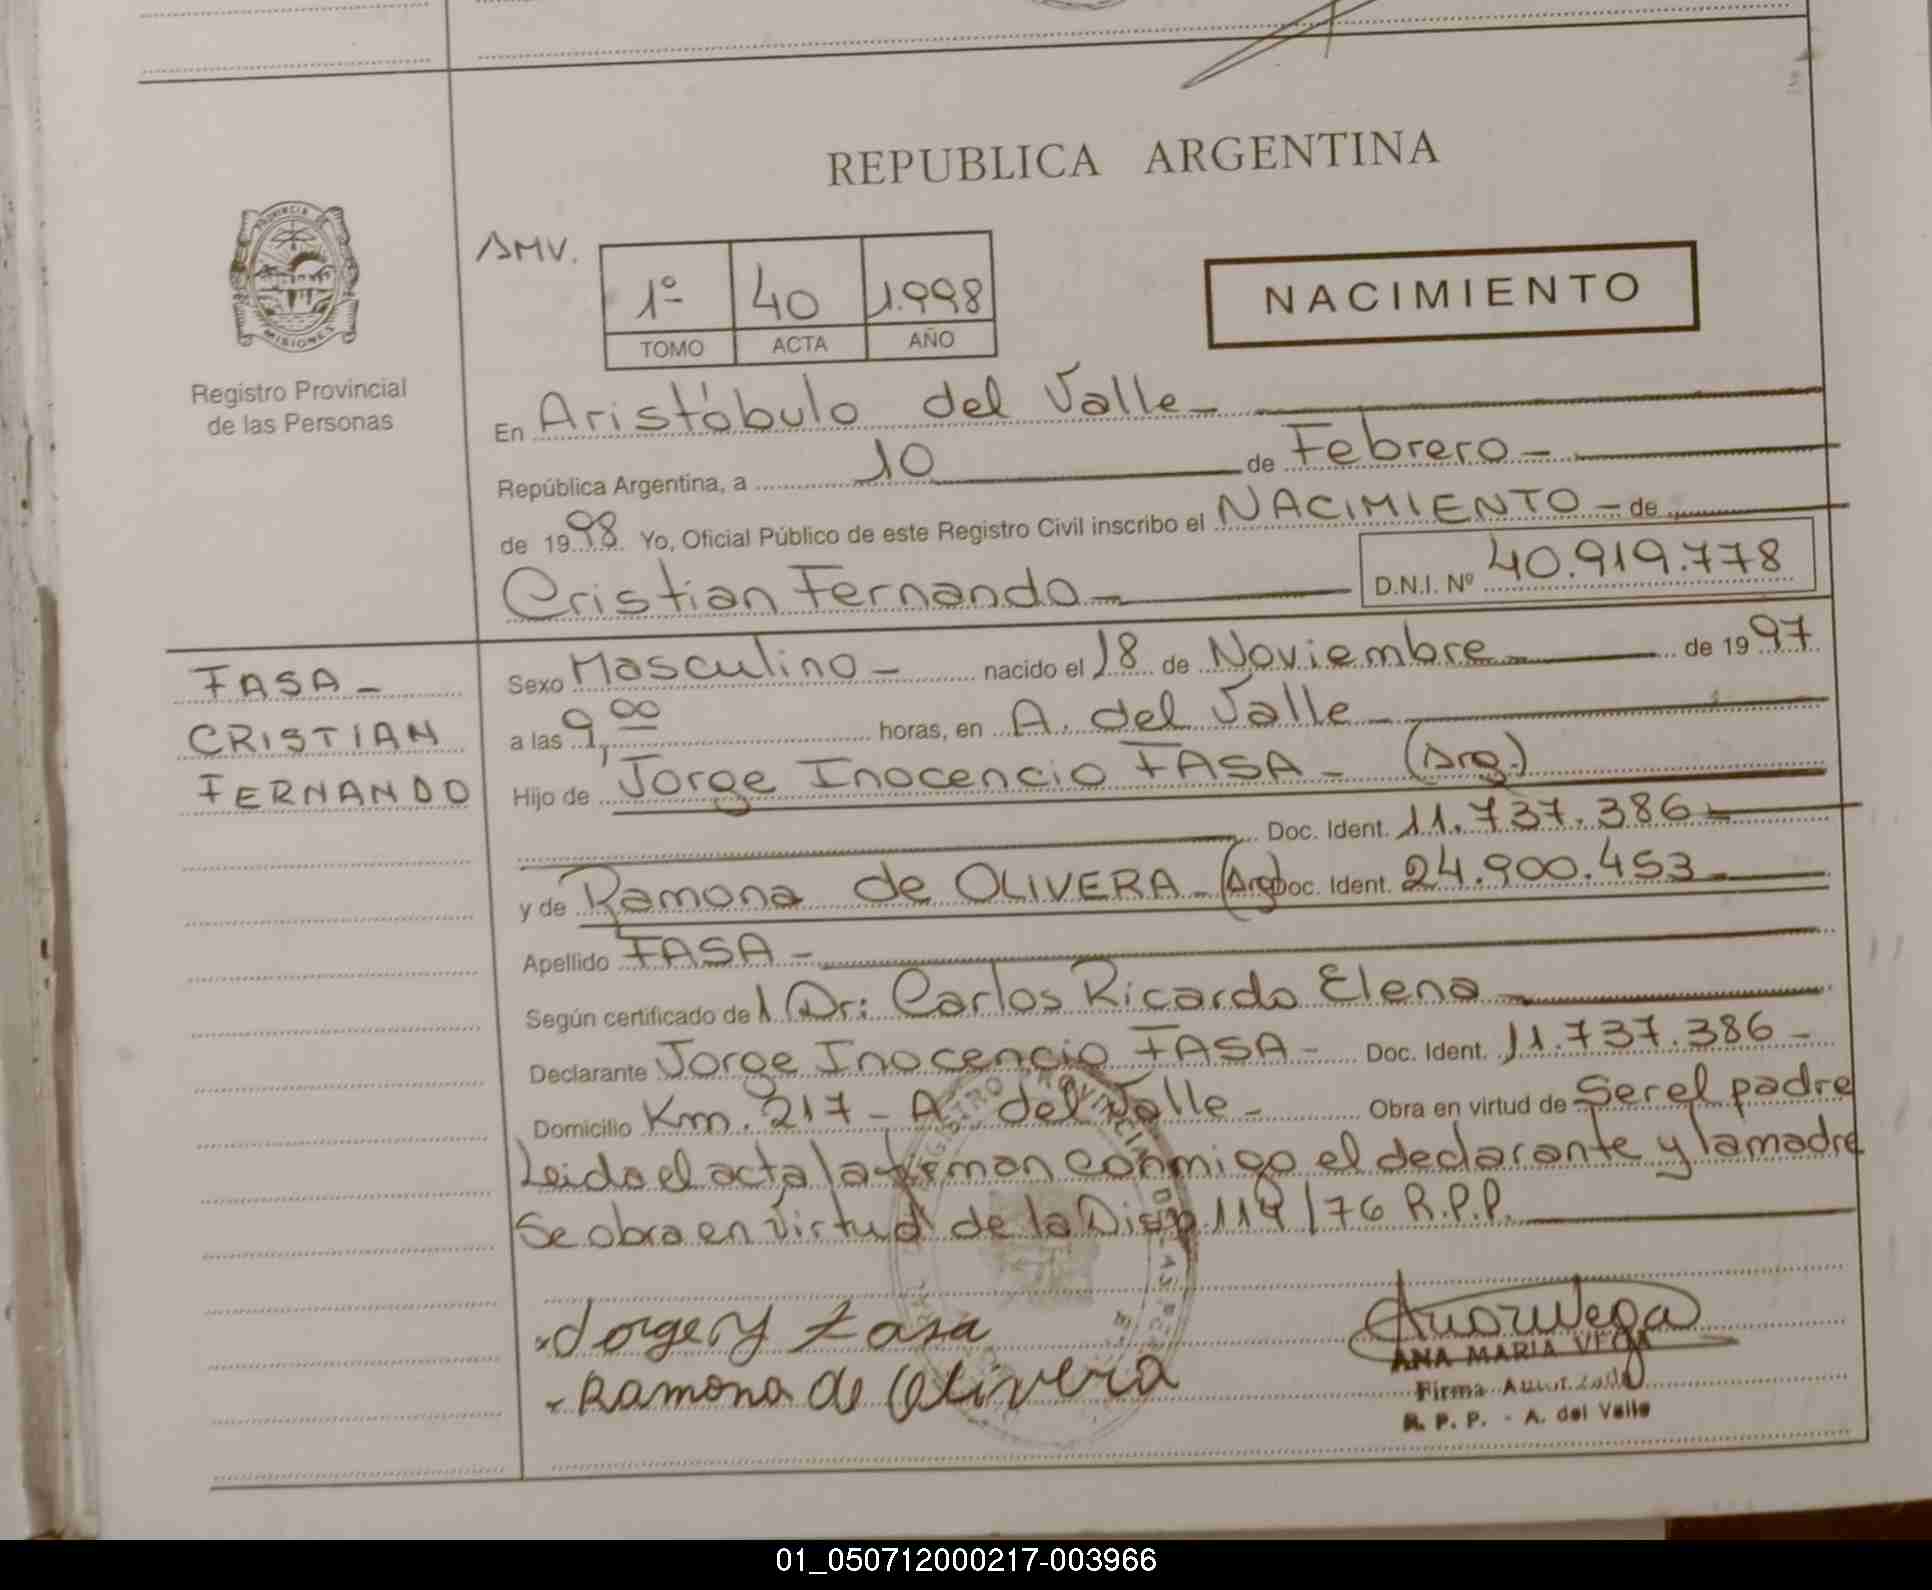 REPUBLICA ARGENTINA
PROVINCIA DE
MISIONES
Registro Provincial
de las Personas
AMV.
1º 40 1.998
TOMO ACTA AÑO
NACIMIENTO
En Aristóbulo del Valle-
República Argentina, a 10 de Febrero-
de 1998 Yo, Oficial Público de este Registro Civil inscribo el NACIMIENTO- de
Cristian Fernando-
D.N.I. Nº 40.919.778
FASA-
CRISTIAN
FERNANDO
Sexo Masculino- nacido el 18 de Noviembre de 1997
a las 9,00 horas, en A. del Valle-
Hijo de Jorge Inocencio FASA- (Arg.)
Doc. Ident. 11.737.386-
y de Ramona de OLIVERA-(Arg) Doc. Ident. 24.900.453-
Apellido FASA-
Según certificado del Dr: Carlos Ricardo Elena
Declarante Jorge Inocencio FASA- Doc. Ident. 11.737.386-
Domicilio Km. 217- A. del Valle- Obra en virtud de Ser el padre
Leida el acta la firman conmigo el declarante y la madre
Se obra en virtud de la Disp. /76 R.P.P.
Fasa
Ramona de Olivera
ANA MARIA VEGA
Firma Autorizada
R. P. P. - A. del Valle
01_050712000217-003966